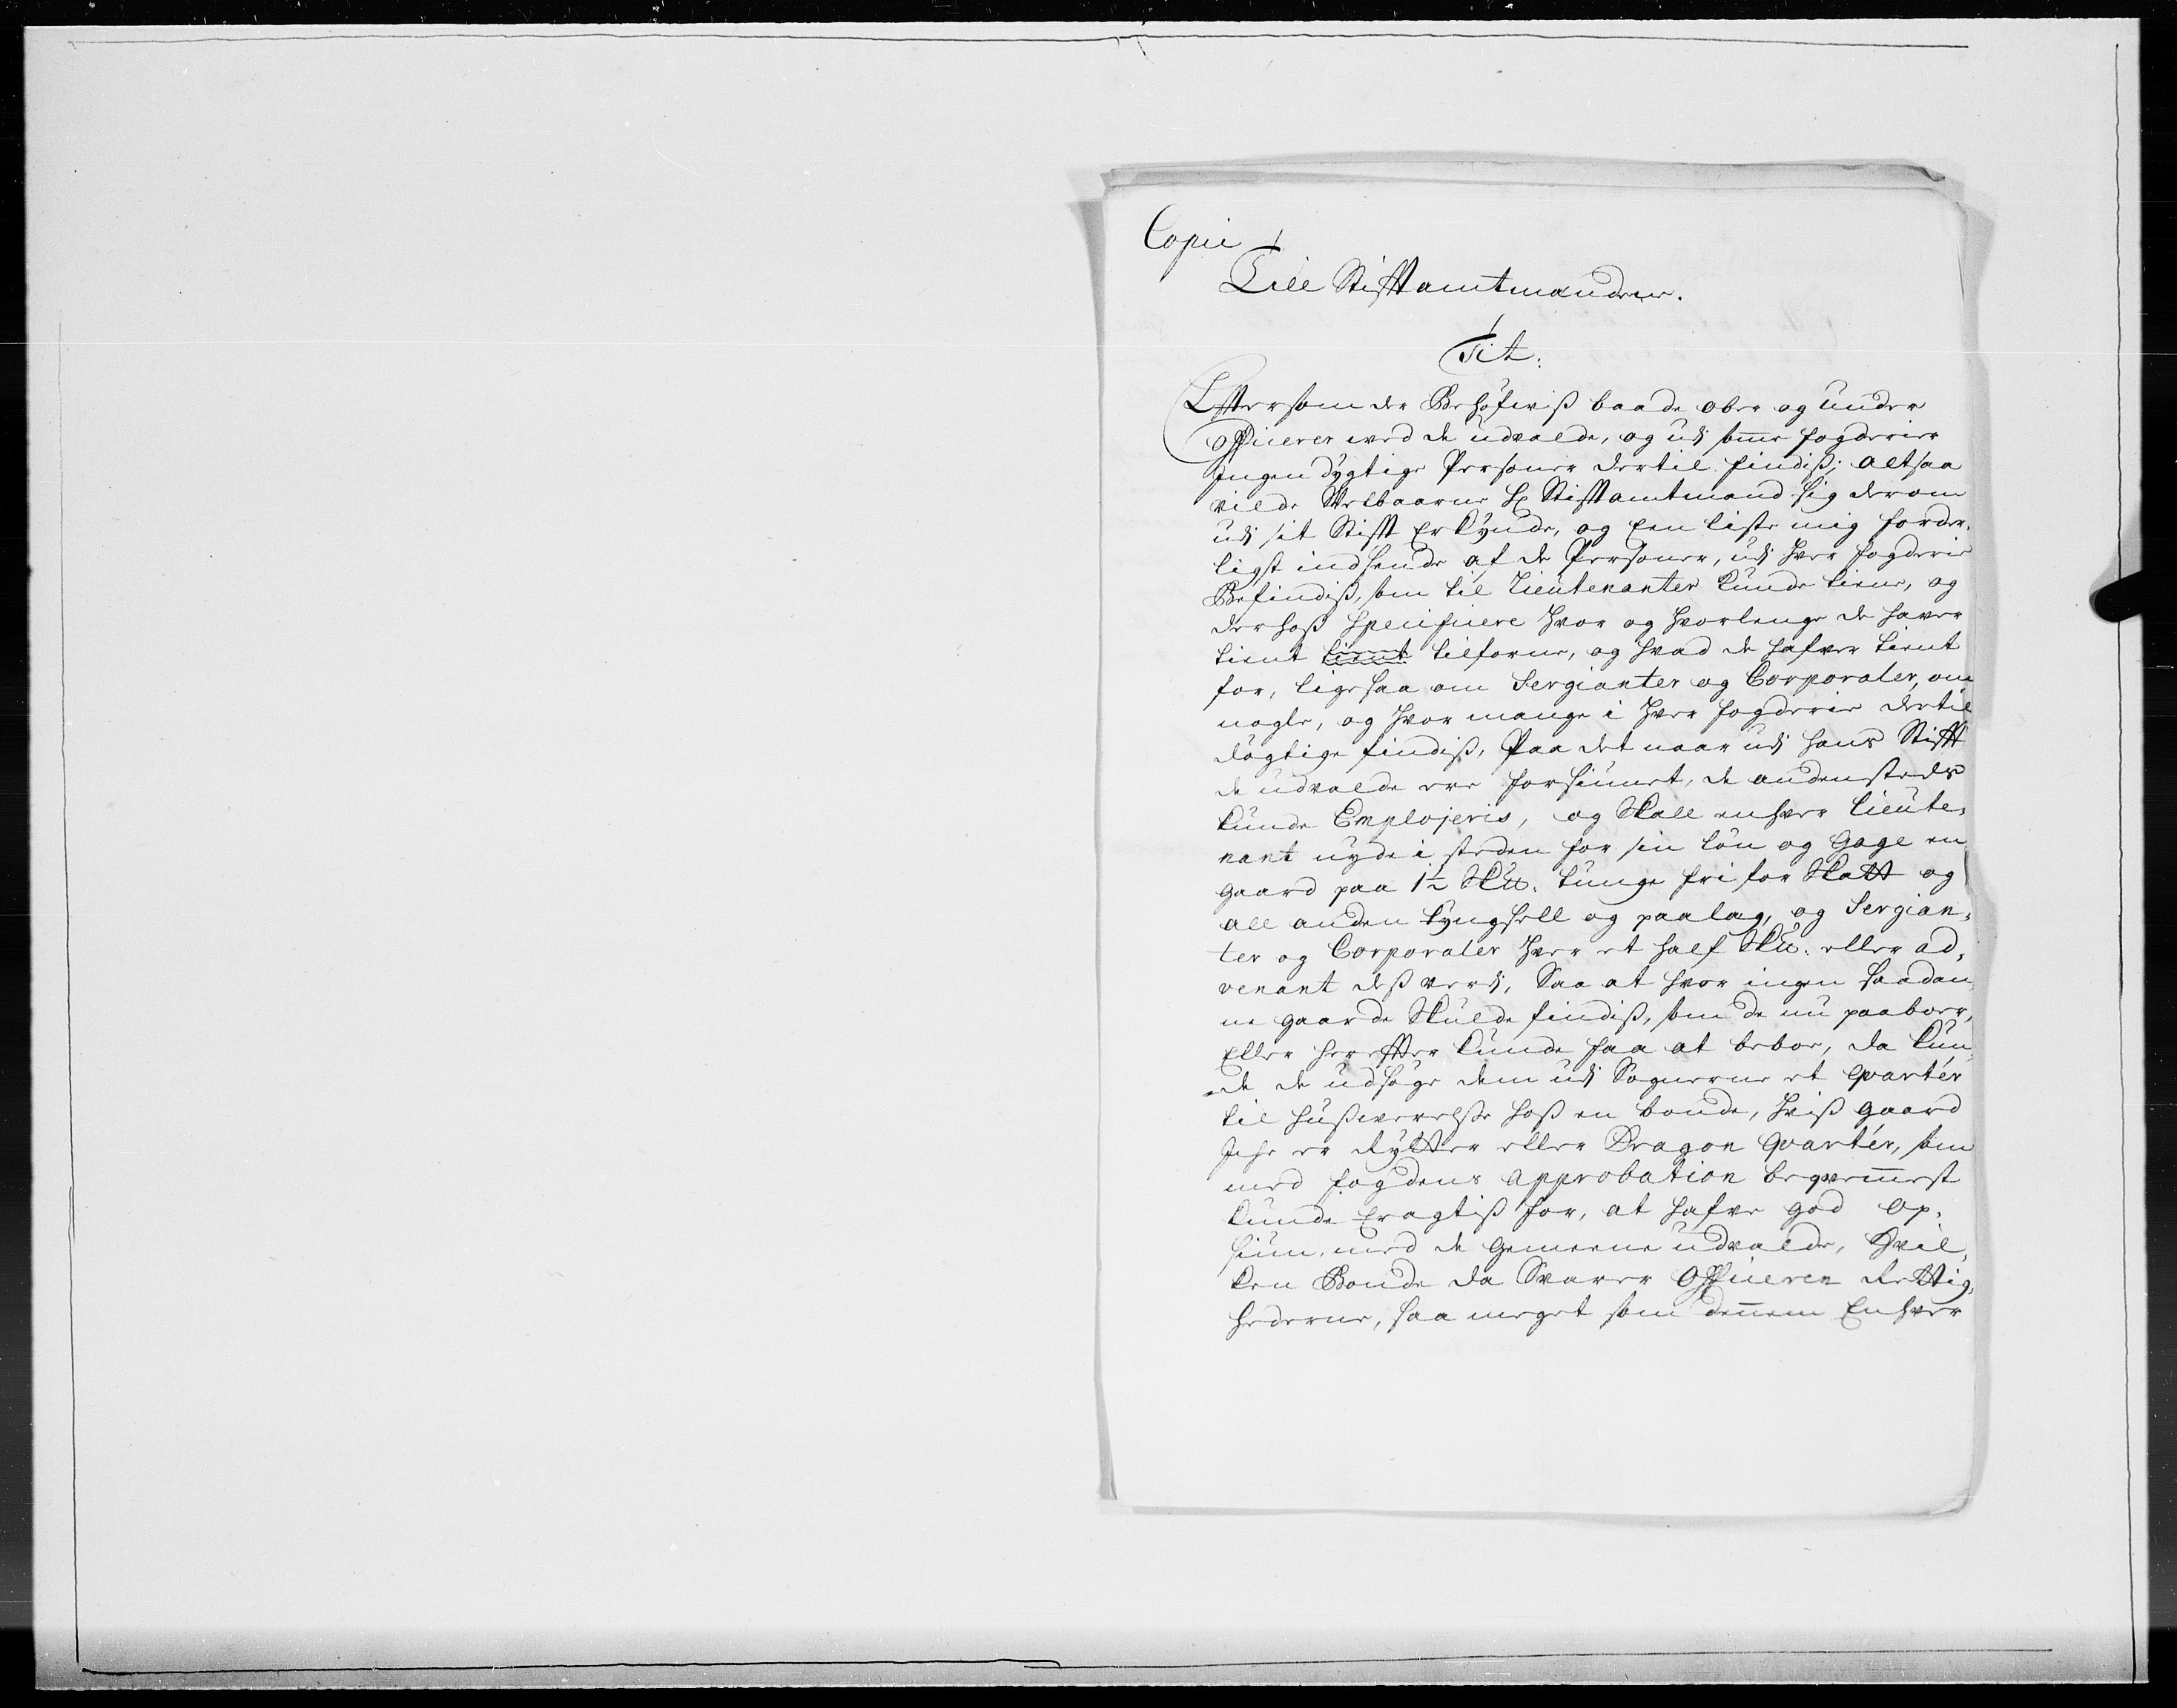 Copie
Till Stifftamtmanden.
Tit:
Efftersom der Behøfvis baade ober og under
officerer ved de udvalde, og udj somme fogderier
Ingen dygtige Personer dertil findiß; altsaa
vilde Velbaarne H: Stifftamtmand sig derom
udj sit Stifft Erkynde, og Een liste mig forder-
ligst indsende af de Personer, udj hver fogderie
Befindiß, som til Lieutenanter kunde tiene, og
derhoß Specificere hvor og hvorlenge de haver
tient tient tilforne, og hvad de hafver tient
for, ligesaa om Sergianter og Corporaler, om
nogle, og hvor mange i hver fogderie dertil
døgtige findiß, Paa det naar udj hans Stifft
de udvalde ere forsiunet, de andensteds
kunde Emplojeris, og Skall enhver Lieute-
nant nyde i steden for sin løn og Gage en
gaard paa 1½ Skll. tunge fri for Skatt og
all anden tyngsell og paalag, og Sergian-
ter og Corporaler hver et half Skll. eller ad-
venant deß verdj, Saa at hvor ingen saadan
ne gaarde Skulde findiß, som de nu paaboer,
Eller herefter kunde faa at beboe, da kun-
de de udsøge dem udj Sognerne et qvarteer
til hußverelße hoß en bonde, hviß gaard
Iche er Rytter eller Dragon qvarteer, som
med fogdens approbation beqvemmest
kunde Eragtiß for, at hafve god op-
siun, med de Gemeene udvalde, hvil-
ken Bonde da Svarer Officeren Rettig-
hederne, saa meget som dennem Enhver